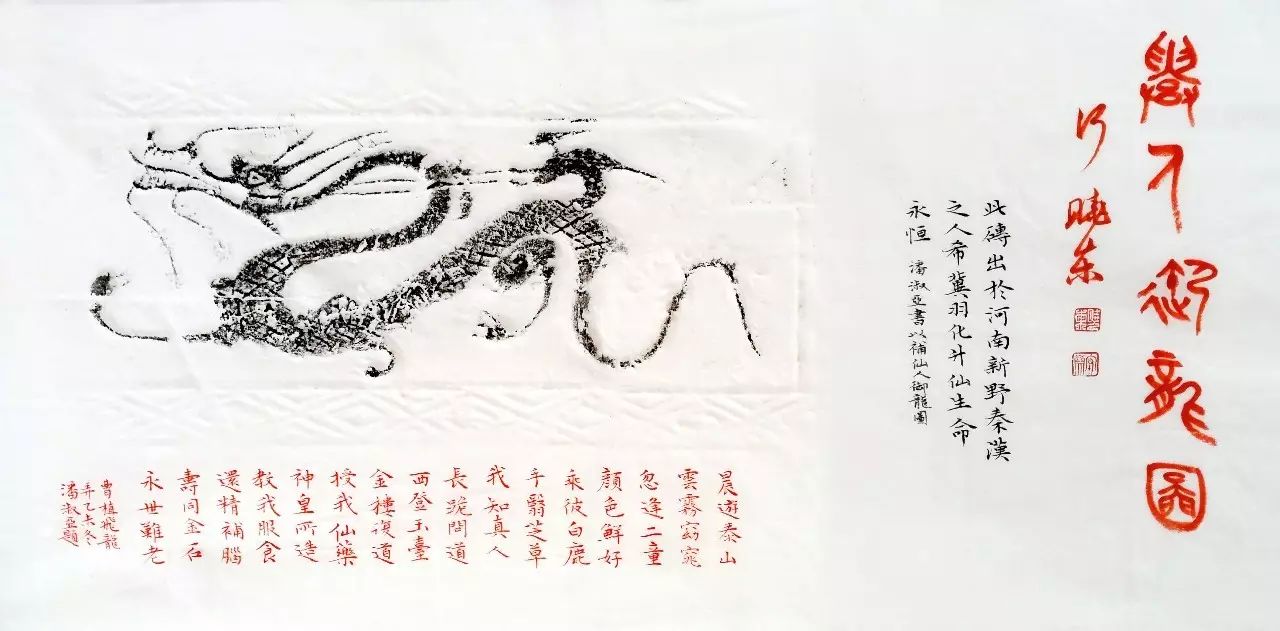 䙴人御龍圖
曉東
此磚出於河南新野秦漢
之人希冀羽化升仙生命
永恒 潘淑亞書以補仙人御龍圖
晨遊泰山
雲霧窈窕
忽逢二童
顏色鮮好
乘彼白鹿
手翳芝草
我知真人
長跪問道
西登玉臺
金樓復道
授我仙藥
神皇所造
教我服食
還精補腦
壽同金石
永世難老
曹植飛龍
乙未冬
潘淑亞題